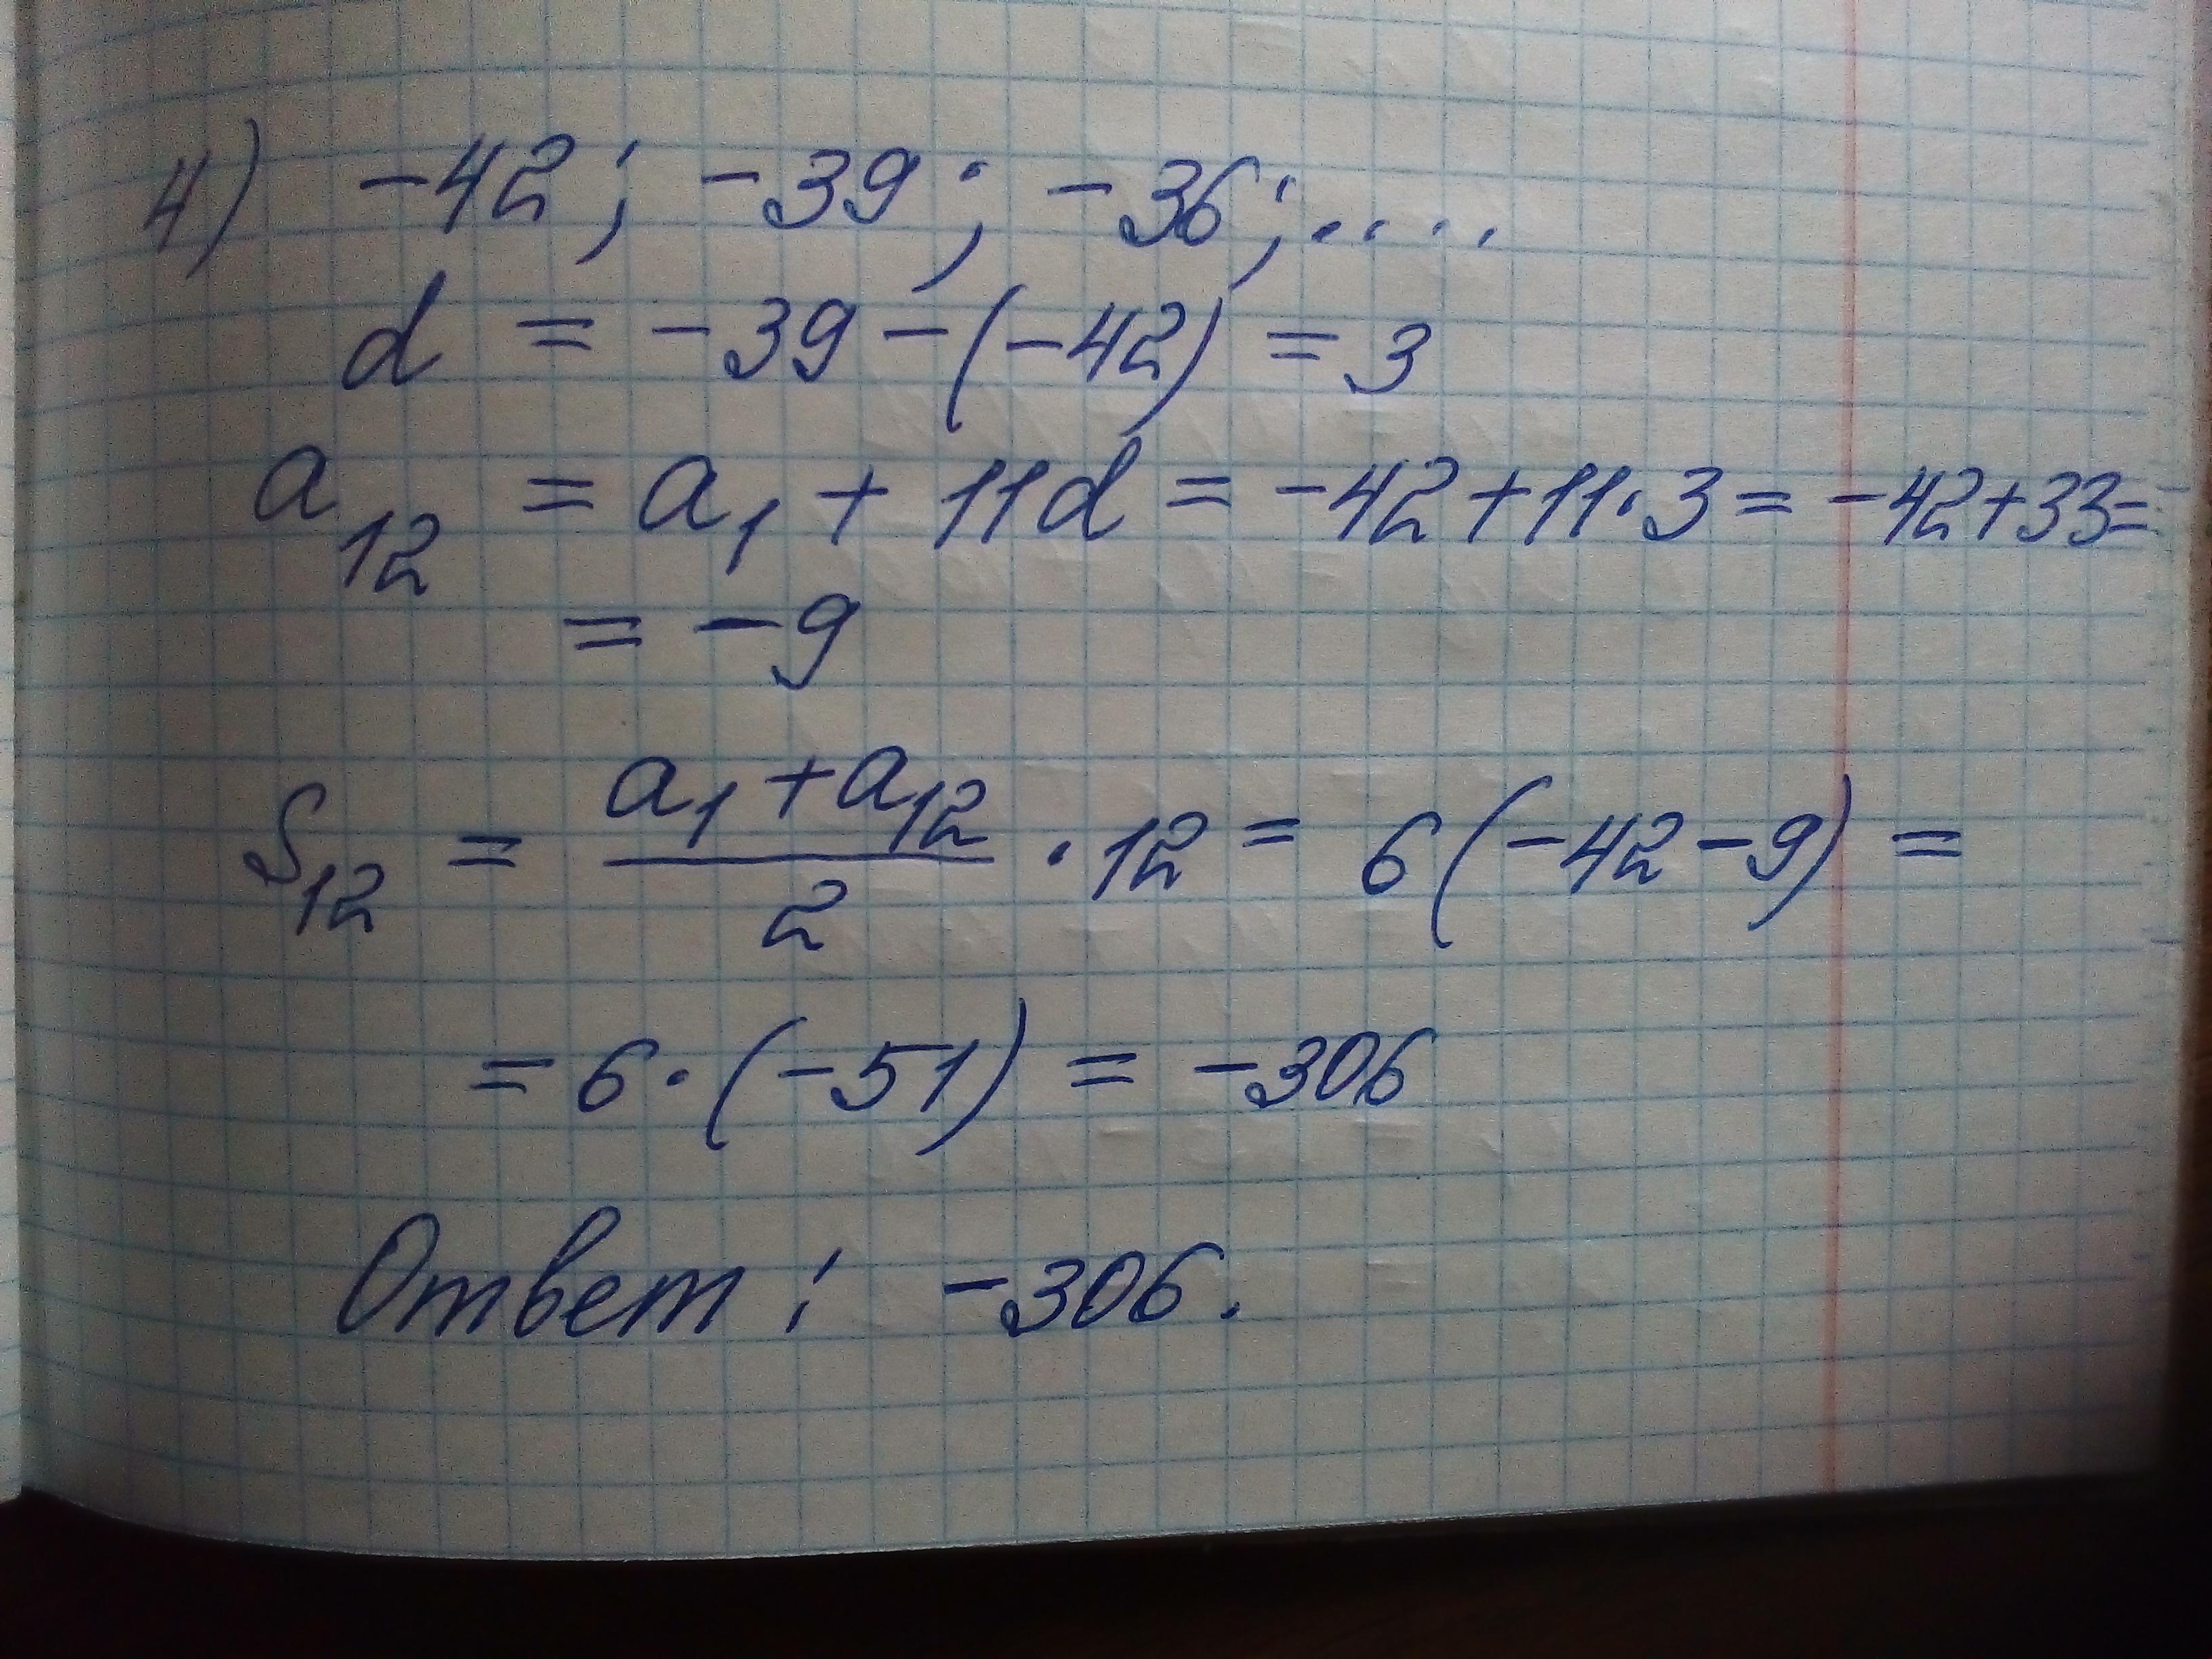 4) -42; -39; -36; .....
d = -39-(-42) = 3
a₁₂ = a₁ + 11d = -42+11·3 = -42+33=
= -9
S₁₂ = (a₁ + a₁₂)/2 · 12 = 6(-42-9) =
= 6·(-51) = -306
Ответ: -306.